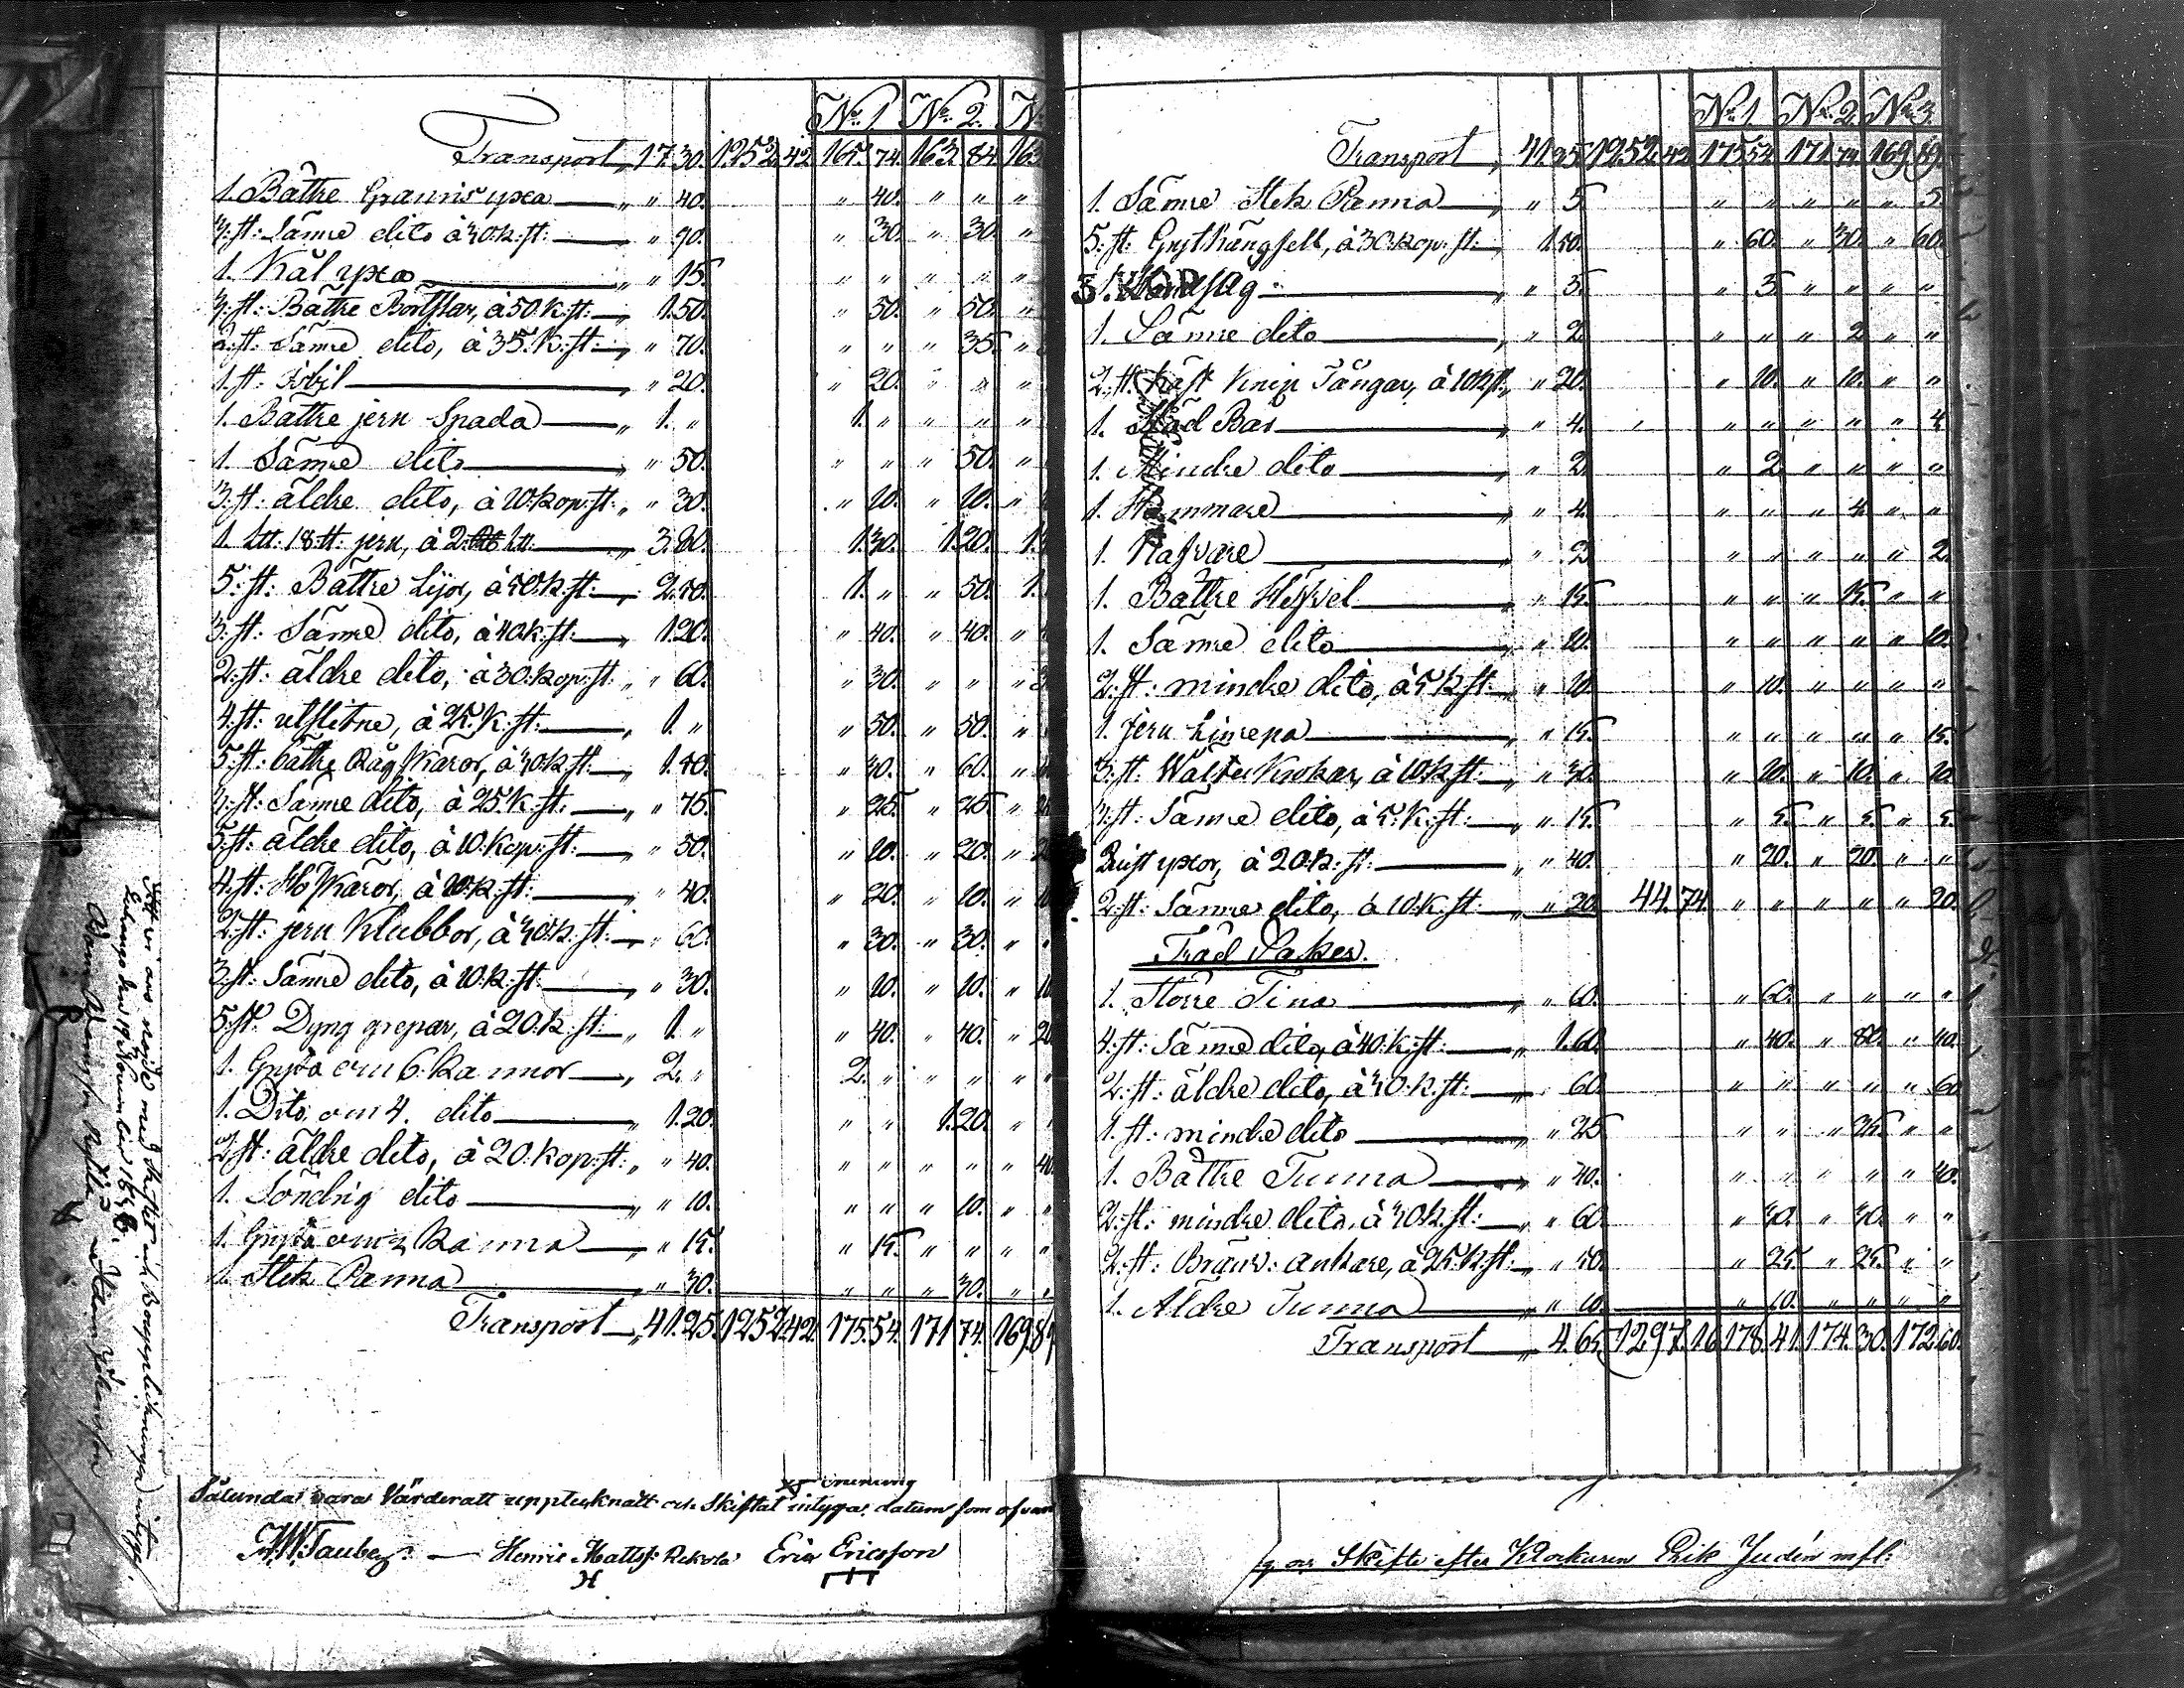 No. 1. No. 2. N
Transport 17.30. 1252 42. 165. 74. 163. 84. 163
1. Bättre Grannis yxa " 40. " 40. " " "
3: st: Sämre dito à 30. k: st: " 90. " 30. " 30. "
1. Kål yxa " 15. " " " " "
3: st: Bättre Bortskar, à 50 k: st: 1.50. " 50. " 50. "
2: st: Sämre dito, à 35. k: st: " 70. " " " 35. "
1. st: " 20. " 20. " " "
1. Bättre jern Spada 1. " 1. " " " "
1. Sämre dito " 50. " " " 50. "
3: st: äldre dito, à 10. kop: st: " 30. " 10. " 10. "
1. 18. jern, à 2. 3.80. 1.30. 1.20. 1.
5: st: Bättre Lijor, à 50. k: st: 2.50. 1. " " 50. 1.
3: st: Sämre dito, à 40. k: st: 1.20. " 40. " 40. "
2: st: äldre dito, à 30. kop: st: " 60. " 30. " " "
4: st: utslitne, à 25. k: st: 1. " " 50. " 50. "
5: st: bättre Råg Skäror, à 30 k st: 1.50. " 30. " 60. "
3: st: Sämre dito, à 25. k: st: " 75. " 25. " 25. "
5: st: äldre dito, à 10. kop: st: " 50. " 10. " 20. "
4: st: Hö Skäror, à 10. k: st: " 40. " 20. " 10. " 10
2: st: jern Klubbor, à 30. k: st: " 60. " 30. " 30. "
3: st: Sämre dito, à 10. k: st: " 30. " 10. " 10. " 10
5: st: Dyng grepar, à 20. k: st: 1. " " 40. " 40. " 20
1. Gryta om 6. Kannor 2. " 2. " " " "
1. Dito om 4. dito 1.20. " " 1.20. "
2: st: äldre dito, à 20. kop: st: " 40. " " " " " 40.
1. Söndrig dito " 10. " " " 10. "
1. Gryta om Kanna " 15. " 15. " " "
1. Stek Panna " 30. " " " 30. "
Transport 41.25. 1252 42. 175. 54. 171 74. 169. 89
Sålunda vara Värderatt uppteknatt och Skiftat intygar datum som ofvan
Tauber. Henric Matts: Rekola Eric Ericsson
Att vi äro nöjde med Skiftet och Bouppteckningen intyga
No. 1 No. 2. No. 3.
Transport 41.25 1252.42 175.54. 171.74. 169.89.
1. Sämre Stek Panna " 5 " " " " " 5
5: st: Gryt hängsell, à 30. kop: st: 1.50. " 60. " 30. " 60.
1. Handsåg " 5. " 5 " " " "
1. Sämre dito " 2 " " " 2 " "
2: st: häst Knip Tångar, à 10 k st: " 20. " 10. " 10. " "
1. Städ Bas " 4. " " " " " 4
1. Mindre dito " 2 " 2 " " " "
1. Hammare " 4. " " " 4. " "
1. Nafvare " 2 " " " " " 2.
1. Bättre Hefvel " 15. " " " 15. " "
1. Sämre dito " 10. " " " " " 10.
2: st: mindre dito, à 5 k st: " 10. " 10. " " " "
1. jern " 15. " " " " " 15.
3: st: Krokar, à 10. k st: " 30. " 10. " 10. " 10
3: st: Sämre dito, à 5. k: st: " 15. " 5. " 5. " 5.
2: yxor, à 20. k: st: " 40. " 20. " 20. " "
2: st: Sämre dito, à 10. k: st: " 20. 44.74. " " " " " 20.
Träd Saker.
1. Större Tina " 60. " 60. " " " "
4: st: Sämre dito, à 40. k: st: 1.60. " 40. " 80. " 40.
2: st: äldre dito, à 30. k: st: 60. " " " " " 60
1. st: mindre dito " 25 " " " 25. " "
1. Bättre Tunna " 40. " " " " " 40.
2: st: mindre dito, à 30 k: st: " 60. " 30. " 30. " "
2: st: Bränv: ankare, à 25. k: st: " 50. " 25. " 25. " "
1. Äldre Tunna " 10. " 10. " " " "
Transport 4.65. 1297.16. 178.41. 174.30. 172.60.
Skifte efter Klockaren Erik Judén mfl: